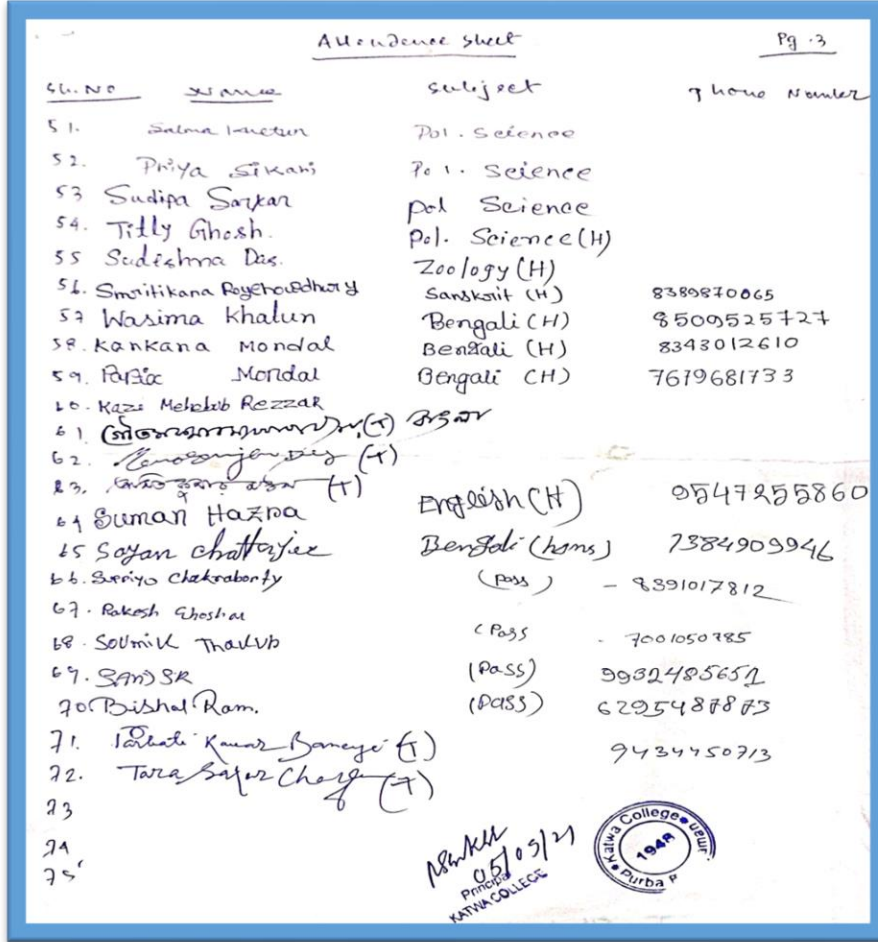 Attendance Sheet Pg. 3
Sl. No Name Subject Phone Number
51. Salma Khatun Pol. Science
52. Priya Sikari Pol. Science
53 Sudipa Sarkar pol Science
54. Titly Ghosh. Pol. Science (H)
55 Sudeshna Das. Zoology (H)
56. Smritikana Roychowdhury Sanskrit (H) 8389870065
57 Wasima Khatun Bengali (H) 8509525727
58. Kankana Mondal Bengali (H) 8343012610
59. Mondal Bengali (H) 7679681733
60. Kazi Rezzak
61 (T)
62. Das (T)
63. (T)
64 Suman Hazra English (H) 9547255860
65 Sayan Chatterjee Bengali (hons) 7384909946
66. Supriyo Chakraborty (Pass) - 8391017812
67. Rakesh Ghoshal
68. Soumik Thakur (Pass -
69. (Pass) 9932485651
70. Bishal Ram. (Pass)
71. Kumar (T) 9434450713
72. Tara (T)
73
74
75
05/09/21
Principal
KATWA COLLEGE
Katwa College
1948
Purba